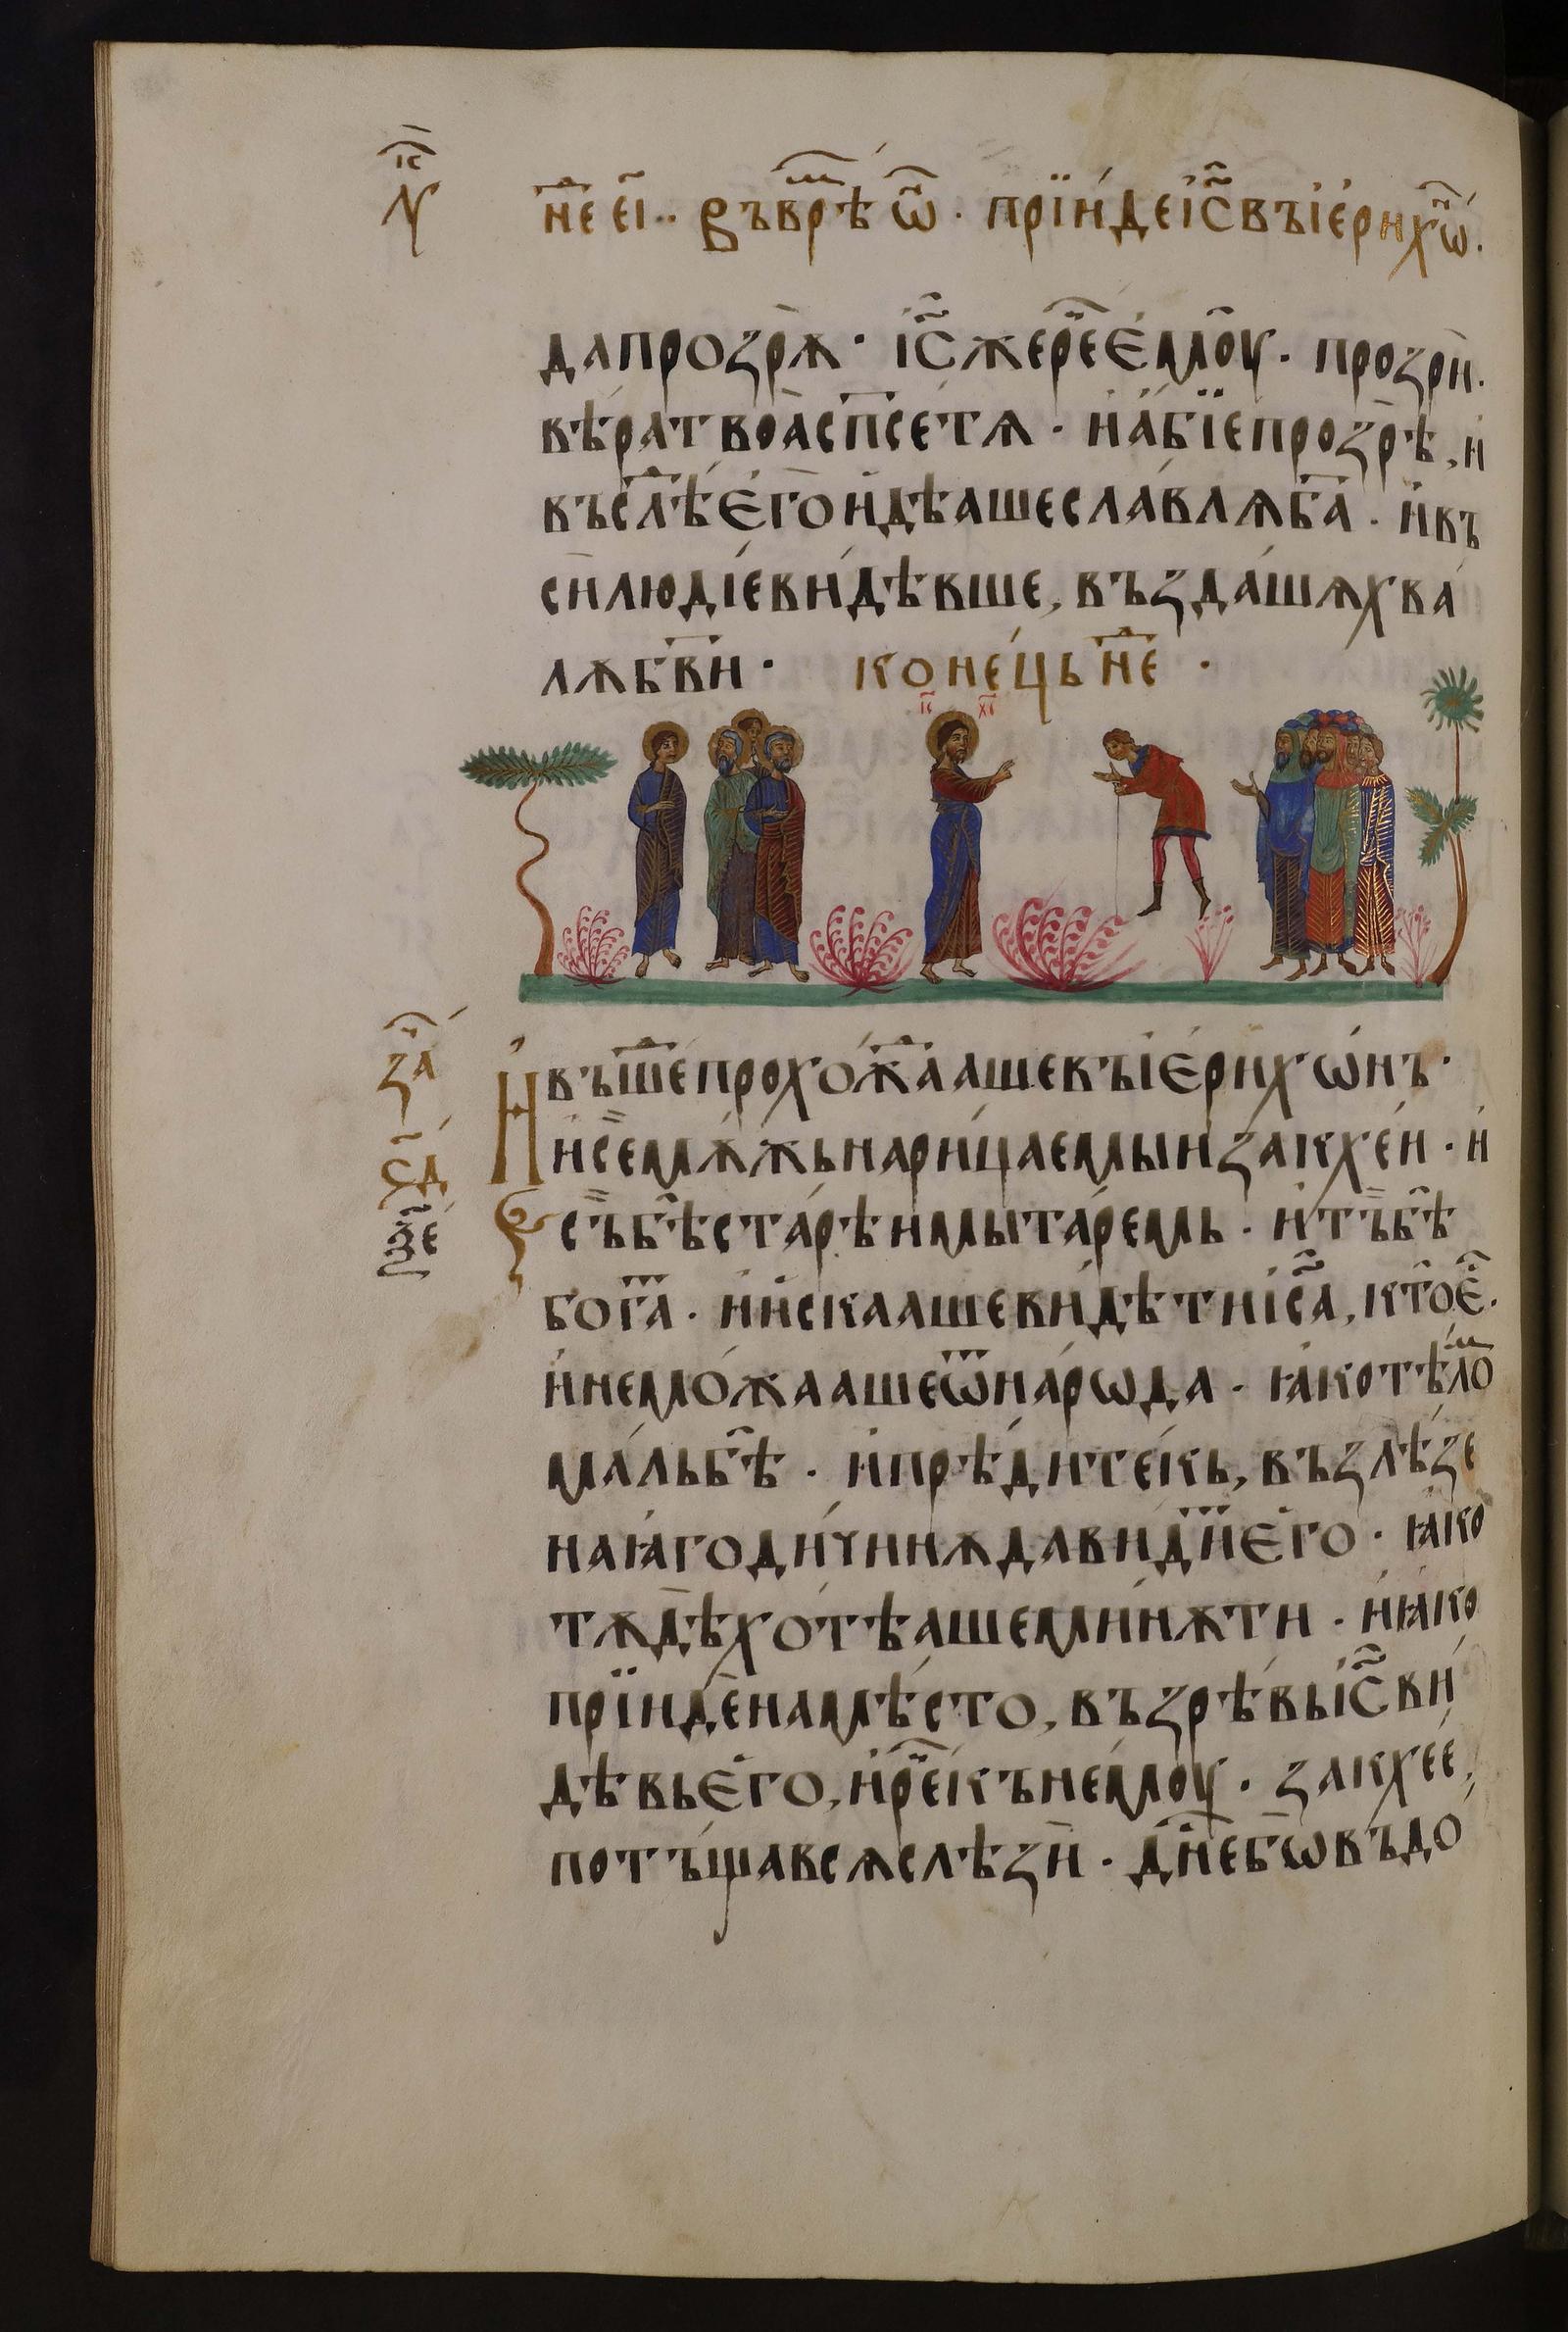 н҃е е҃і·· Въ врѣ ѿ · прїиде і҃с въ іерихѡ ·
да прозрѫ · і҃с же ре емоу · прозри ·
вѣра твоа сп҃сет тѧ · и абїе прозрѣ, и
въ слѣ его идѣаше славлѧ б҃а · и въ
си людіе видѣвше, въздашѧ хва
лѫ б҃ви · конець н҃е ·
і҃с х҃с
за
И въше прохожаааше въ іерихѡнъ ·
и се мѫжь нарицаемыи закхеи · и
сд
ѯе
съ бѣ старѣи мытаремь · и тъ бѣ
бога · и искааше видѣти і҃са, кто е ·
и не можааше ѿ нарѡда · ꙗко тѣло
маль бѣ · и прѣди текь, възлѣзе
на ꙗгодичинѫ да види его · ꙗко
тѫдѣ хотѣаше минѫти · и ꙗко
прїиде на мѣсто, възрѣвь і҃с ви
дѣвь его, и ре къ немоу · закхее,
потъщавсѧ слѣзи · дне бѡ въ до